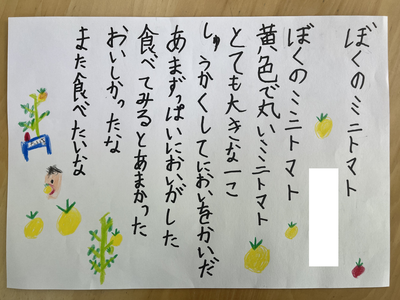 ぼくのミニトマト
ぼくのミニトマト
黄色で丸いミニトマト
とても大きな一こ
しゅうかくしてにおいをかいだ
あまずっぱいにおいがした
食べてみるとあまかった
おいしかったな
また食べたいな